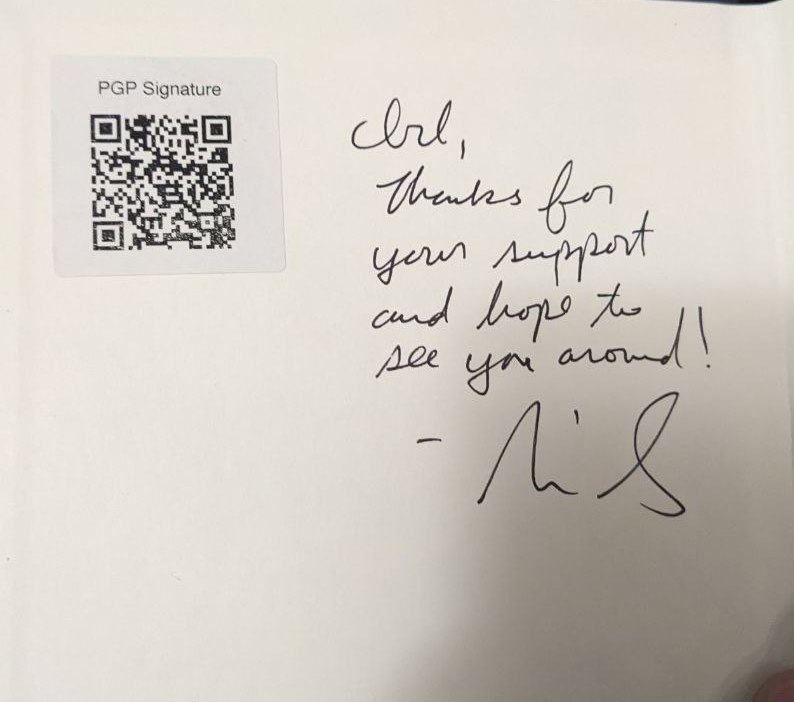 PGP Signature
Thanks for
your support
and hope to
see you around!
-